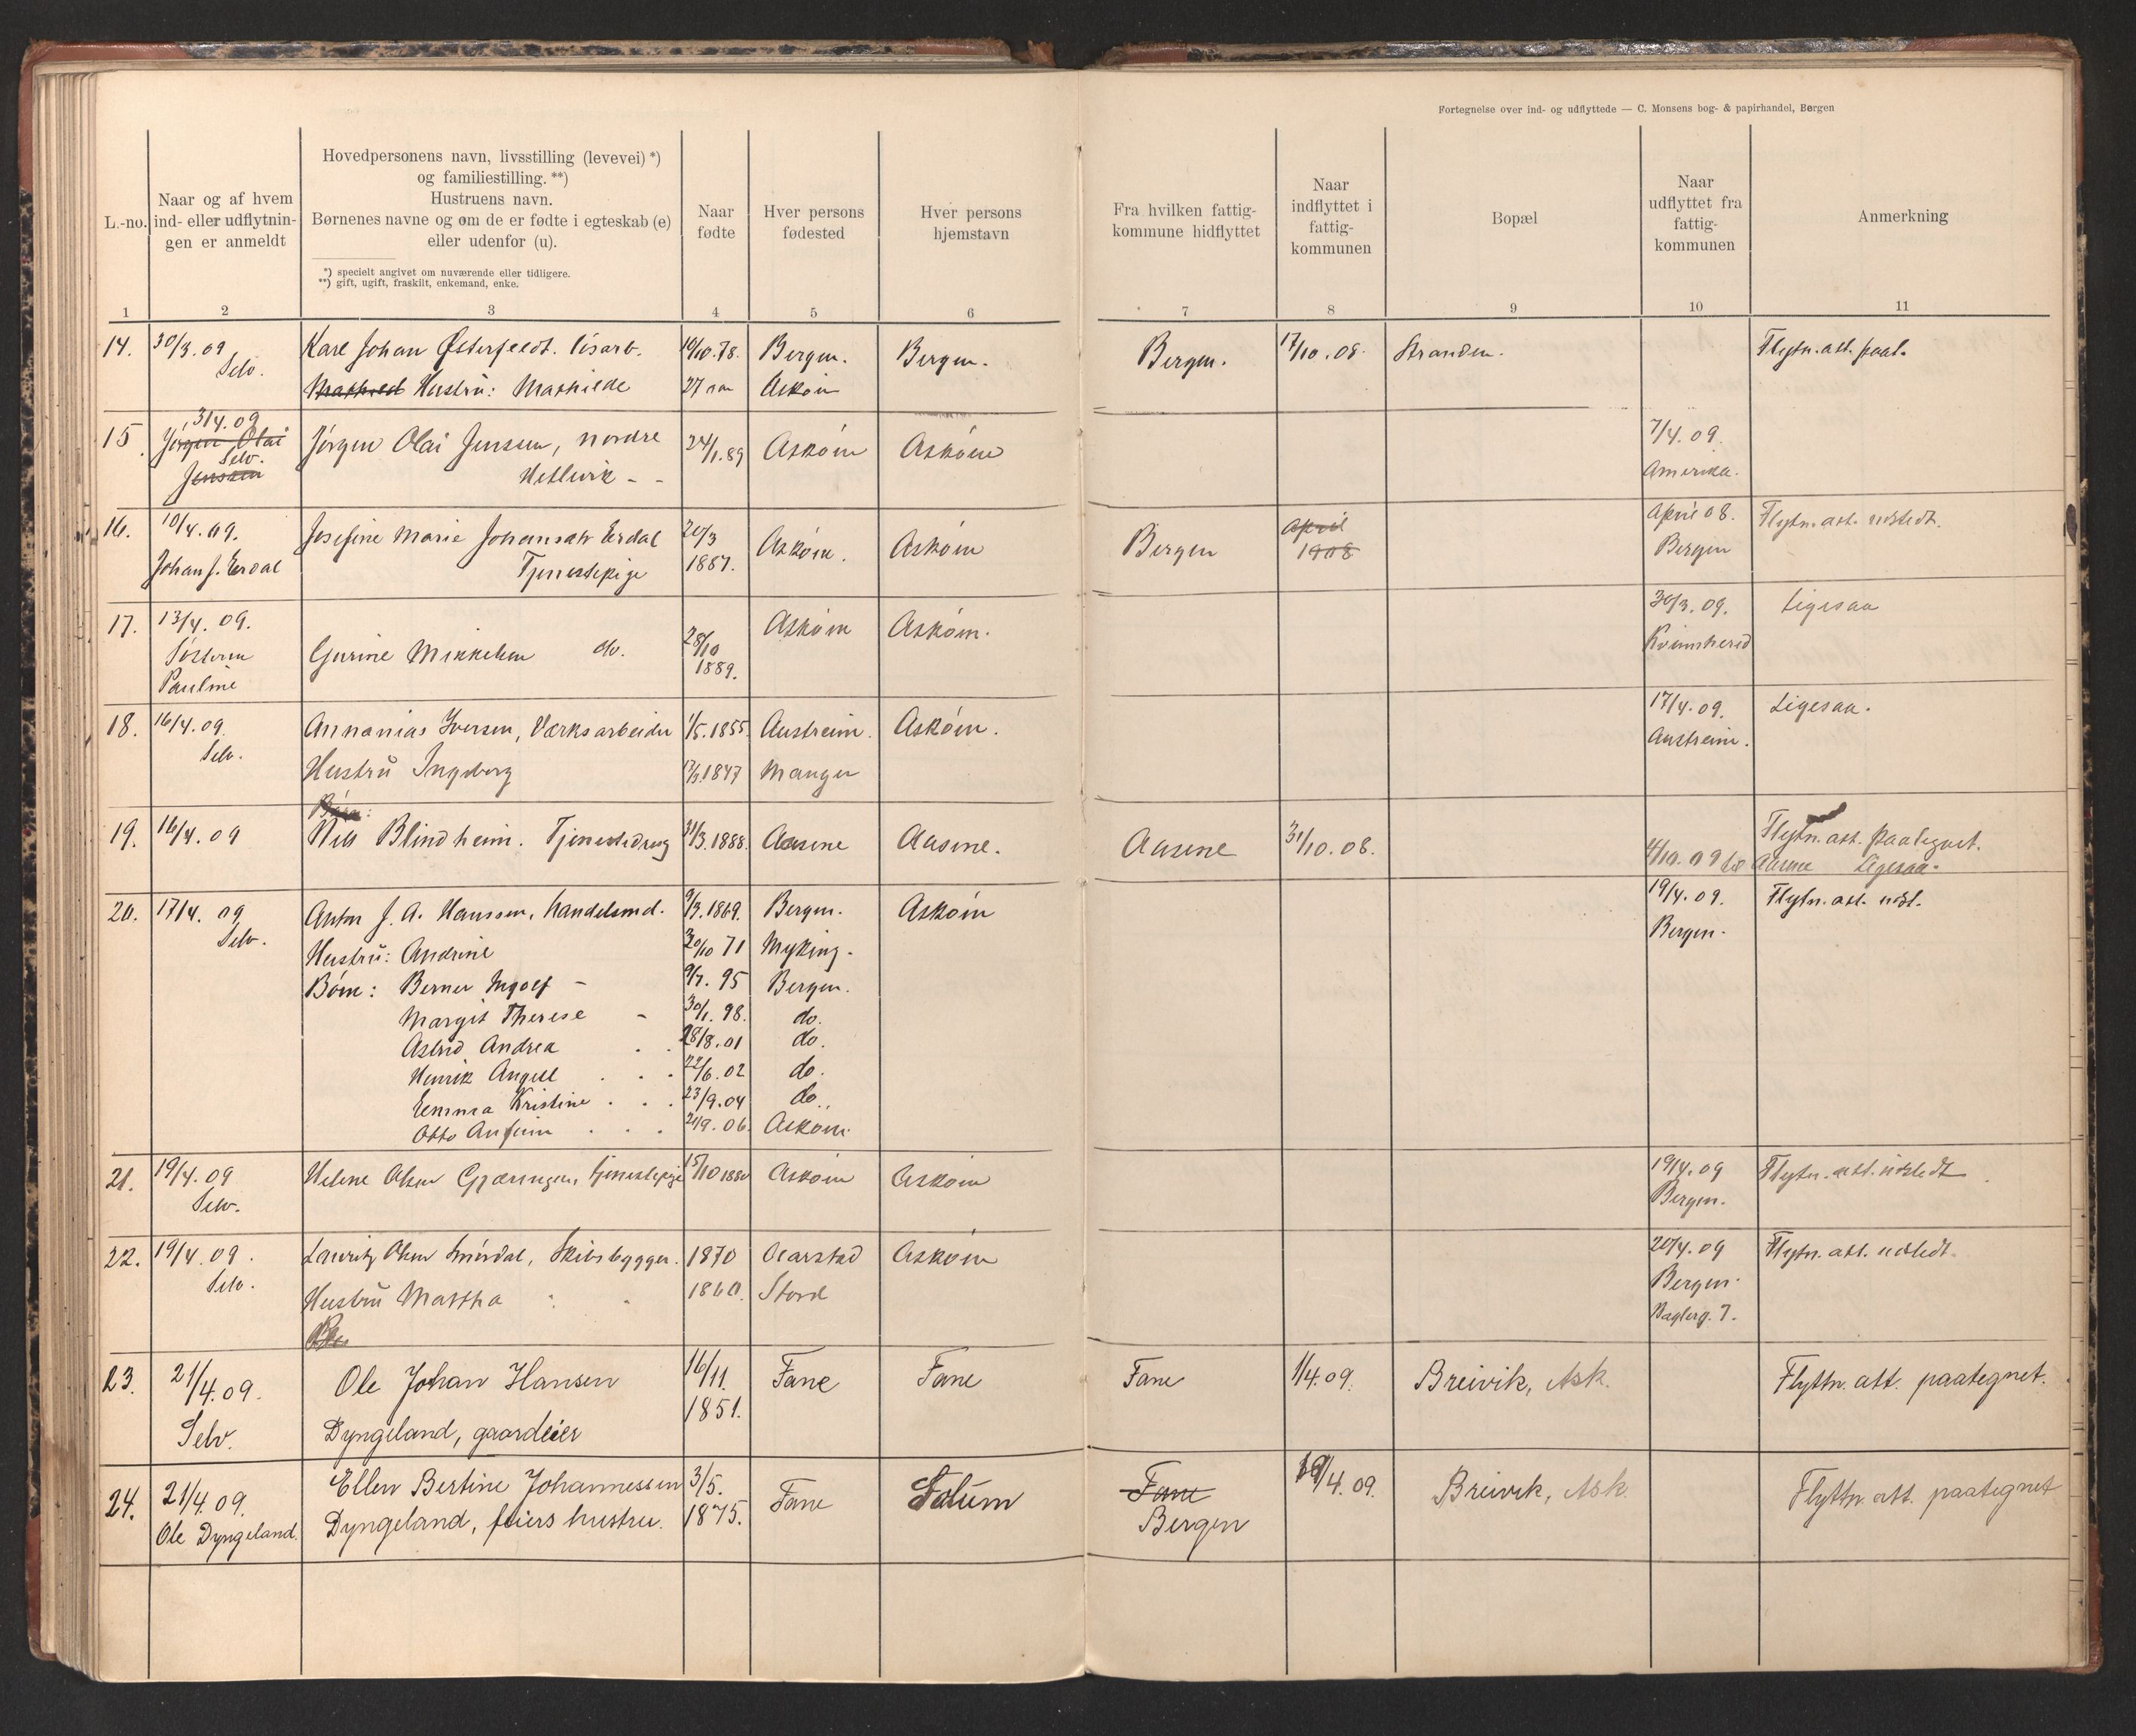 Fortegnelse over ind- og udflyttede — C. Monsens bog- & papirhandel, Bergen
L.-no.
Naar og af hvem
ind- eller udflytnin-
gen er anmeldt
Hovedpersonens navn, livsstilling (levevei) *)
og familiestilling. **)
Hustruens navn.
Børnenes navne og om de er fødte i egteskab (e)
eller udenfor (u).
*) specielt angivet om nuværende eller tidligere.
**) gift, ugift, fraskilt, enkemand, enke.
Naar
fødte
Hver persons
fødested
Hver persons
hjemstavn
Fra hvilken fattig-
kommune hidflyttet
Naar
indflyttet i
fattig-
kommunen
Bopæl
Naar
udflyttet fra
fattig-
kommunen
Anmerkning
1 2 3 4 5 6 7 8 9 10 11
14. 30/3.09 Karl Johan Østerfeldt. 10/10.78. Bergen. Bergen. Bergen. 17/10.08. Stranden. Flytn. att. paat.
Selv. Mathild Hustru: Mathilde 27 Askøen
3/4.09
15 Jørgen Olai Jørgen Olai Jenssen, nordre 24/1.89 Askøen Askøen 7/4.09.
Selv.
Jenssen Hetlevik - - Amerika.
16. 10/4.09. Josefine Marie Johansdtr Erdal 20/3 Askøen. Askøen Bergen April April 08. Flytn. att. udstedt.
Johan J. Erdal Tjenestepige 1887. 1908 Bergen
17. 13/4.09. Askøen Askøen. 30/3.09. Ligesaa
Søsteren Gurine Mikkelsen do. 28/10 Kvinnherred
Pauline 1889.
18. 16/4.09. Annanias Iversen, Værksarbeider 1/5.1855. Austreim. Askøen. 17/4.09. Ligesaa.
Selv. Hustru Ingeborg 1847 Manger Austreim.
Børn:
19. 16/4.09 Nils Blindheim. Tjenestedreng 31/3.1888. Aasene Aasene. Aasene 31/10.08. Flytn. att. paategnet.
4/10.09 til Aasene Ligesaa.
20. 17/4.09 Anton J. A. Hanssen, handelsmd. 9/3.1869. Bergen. Askøen 19/4.09. Flytn. att. udst.
Selv. Hustru: Andrine 30/10 71 Myking. Bergen.
Børn: Berner Ingolf - 9/7.95 Bergen.
Margit Therese - 30/1.98. do.
Astrid Andrea 28/8.01 do.
Henrik Angell 22/6.02 do.
Emma Kristine 23/9.04 do.
Otto 21/9.06. Askøen.
21. 19/4.09 Helene Olsen tjenestepige 15/10 1880 Askøen Askøen 19/4.09 Flytn. att. udstedt.
Selv. Bergen.
22. 19/4.09. Lauritz Olsen Smørdal, Skibsbygger. 1870 Aarstad Askøen 20/4.09 Flytn. att. udstedt.
Selv. Hustru Martha 1860. Stord Bergen.
Baglerg. 7.
23. 21/4.09. Ole Johan Hansen 16/11. Fane Fane Fane 1/4.09. Breivik, Ask. Flyttn. att. paategnet.
Selv. Dyngeland, gaardeier 1851.
24. 21/4.09. Ellen Bertine Johannessen 3/5. Fane Solum Fane 19/4.09. Breivik, Ask Flyttn. att. paategnet
Ole Dyngeland. Dyngeland, hustru. 1875. Bergen